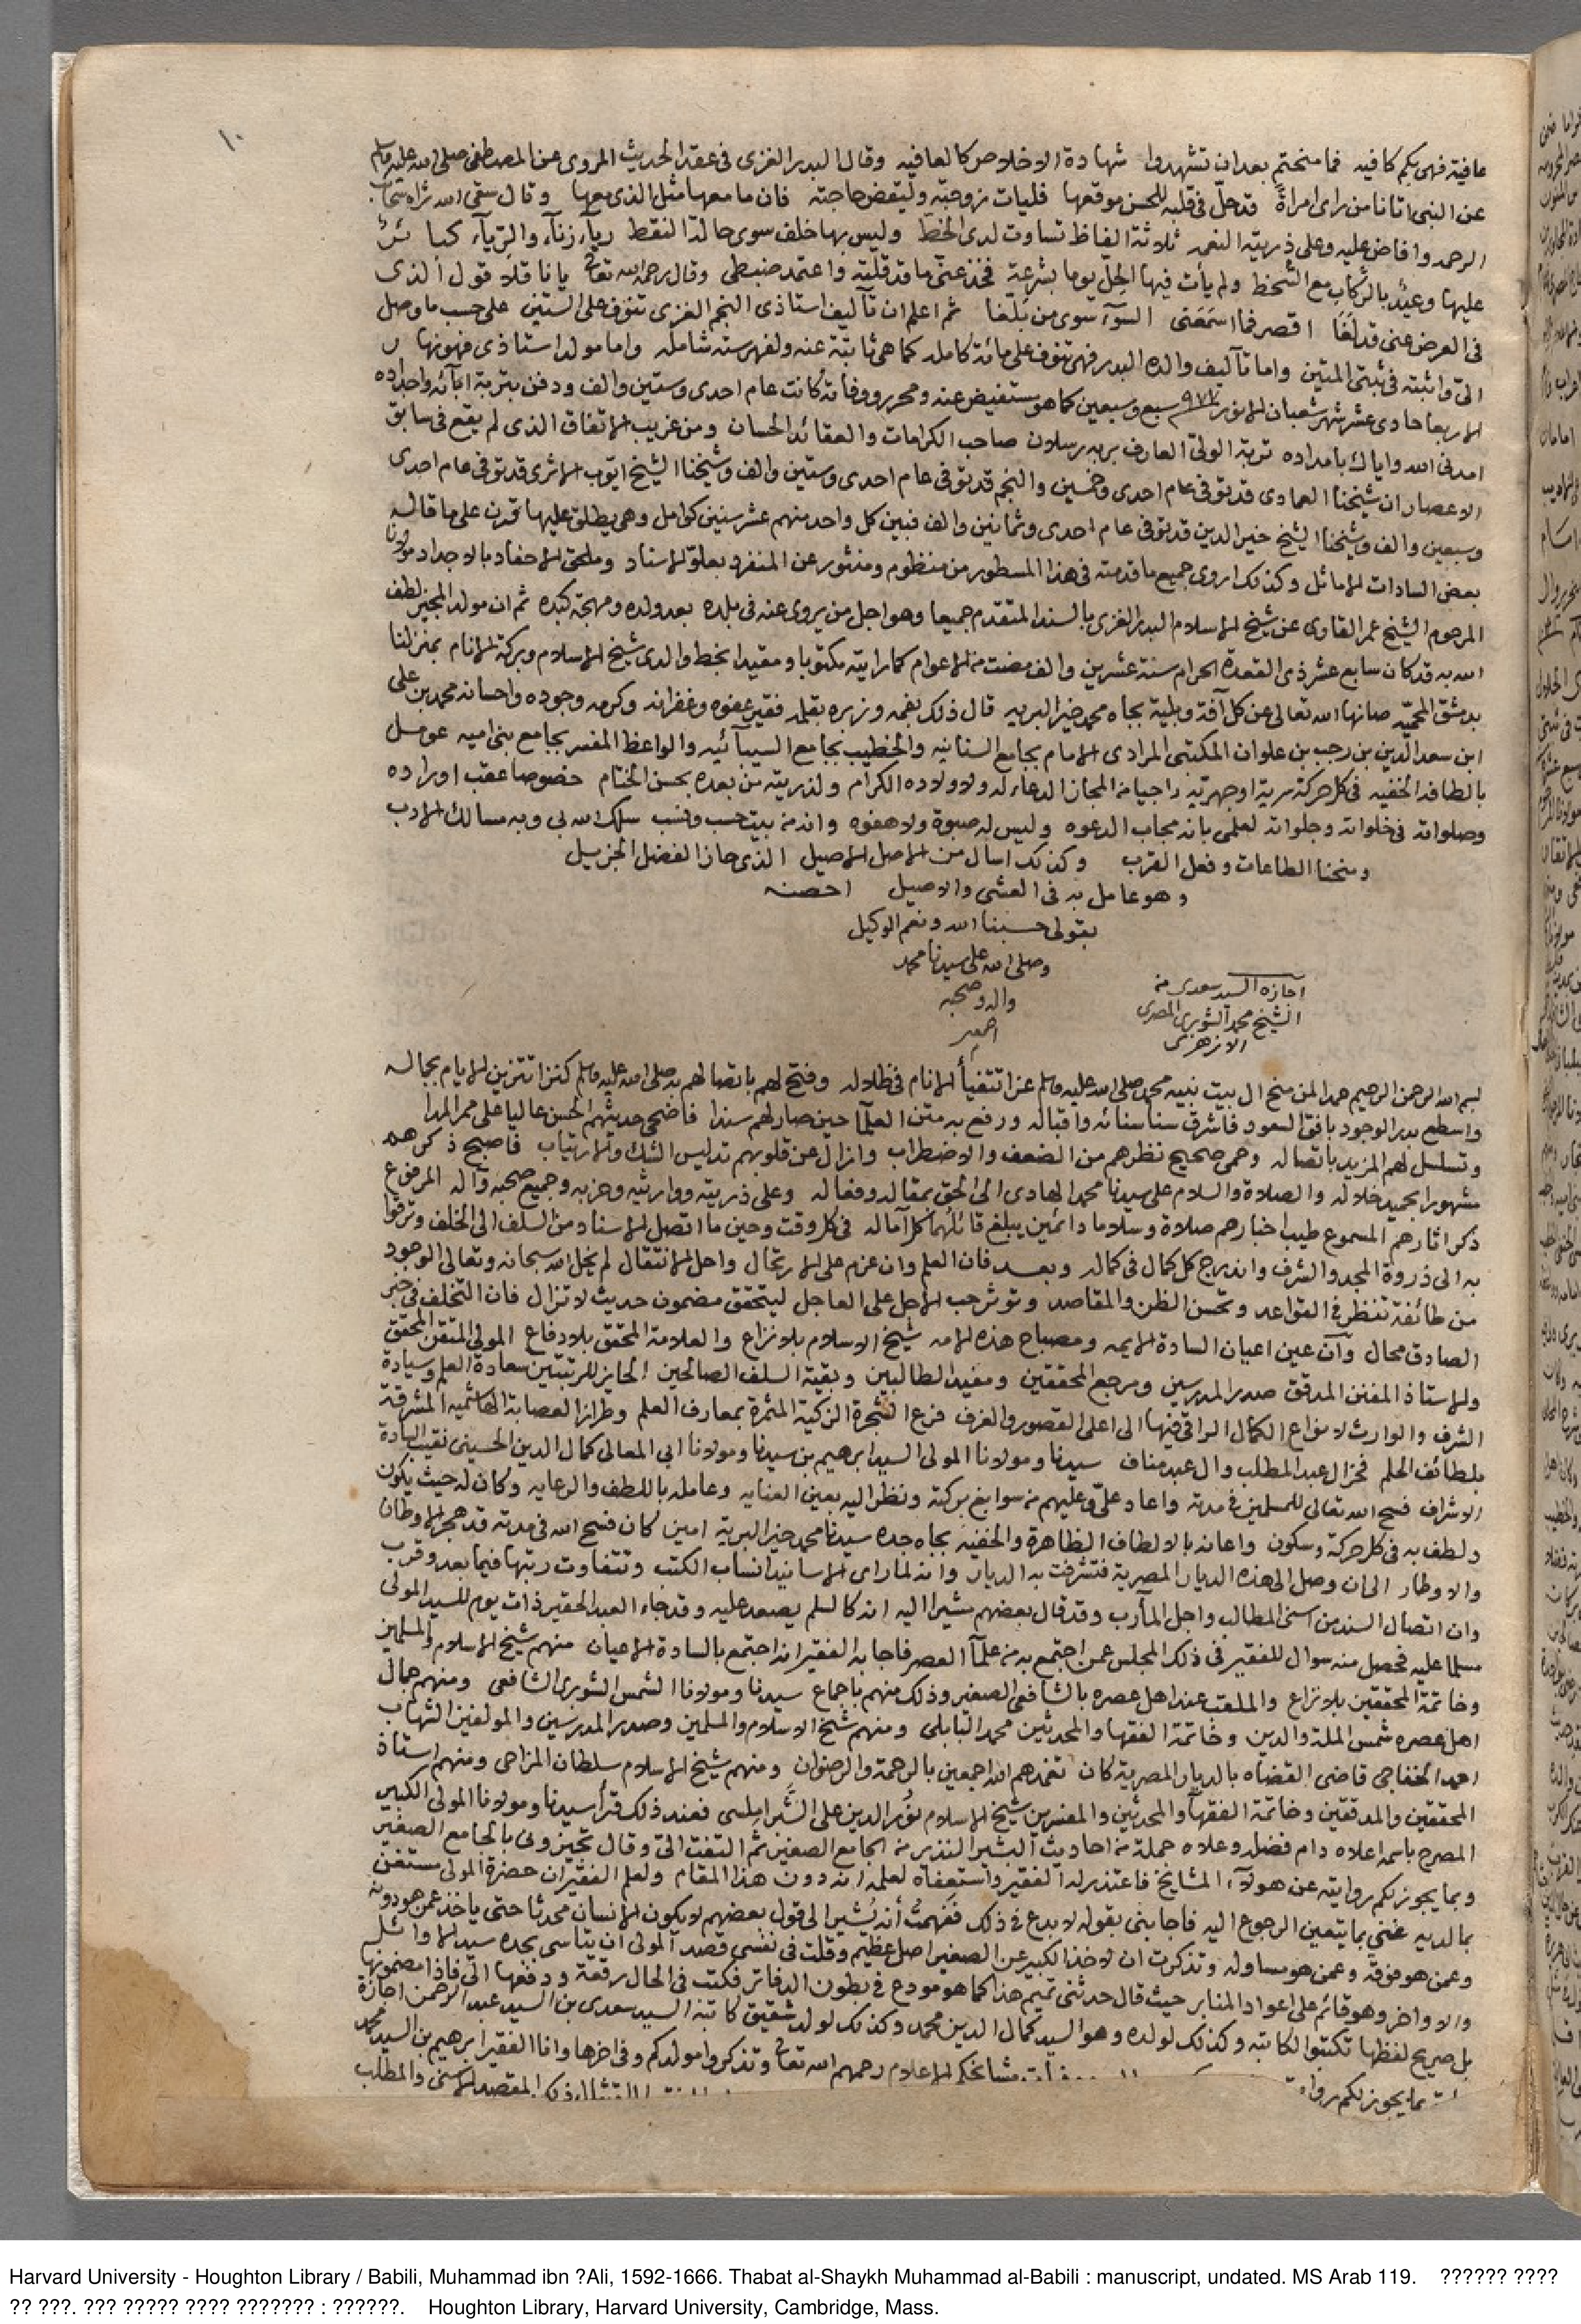 ١٠
عافية فهى بكم كافيه فما منختم بعد ان تشهدوا شهادة الاخلاص كالعافيه وقال البدر الغزى فى عقد الحديث المروى عن المصطفى صلى الله عليه وسلم
عن النبى اتانا من راى امراة قد حلّ فى قلبه للحسن موقعها فليات زوجته وليقض حاجته فان ما معها مثل الذى معها وقال سقى الله ثراه سحاب
الرحمه وافاض عليه وعلى ذريته النعمه ثلاثة الفاظ تساوت لدى الخط وليس بها خلف سوى حالة النقط
عليها وعيد بالركاب مع الشخط ولم يأت فيها الجل يوما بشرعة فخذ عنى ما قد قلته واعتمد ضبطى وقال رحمه الله تعالى يا ناقلا قول الذى
فى العرض عنى قد لغا اقصر فما اسمعنى السوء سوى من بلغا ثم اعلم ان تآليف استاذى النجم الغزى تنوف على الستين على حسب ما وصل
الىّ واثبته فى ثبتى المتين واما تآليف والده البدر فهى تنوف على مائة كامله كما هى ثابتة عنه ولفهرسته شامله واما مولد استاذى فهو نهار
الاربعا حادى عشر شهر شعبان ٩٧٧ سبع وسبعين كما هو مستفيض عنه ومحرر ووفاته كانت عام احدى وستين والف ودفن بتربة آبائه واجداده
امدنى الله واياك بامداده تربة الولىّ العارف بربه رسلان صاحب الكرامات والعقائد الحسان ومن غريب الاتفاق الذى لم يقع فى سابق
الاعصار ان شيخنا العمادى قد توفى عام احدى وخمسين والنجم قد توفى عام احدى وستين والف وشيخنا الشيخ ايوب قد توفى عام احدى
وسبعين والف وشيخنا الشيخ خير الدين قد توفى عام احدى وثمانين والف فبين كل واحد منهم عشر سنين كوامل وهى يطلق عليها قرن على ما قاله
بعض السادات الاماثل وكذلك اروى جميع ما قدمته فى هذا المسطور من منظوم ومنثور عن المنفرد بعلوّ الاسناد وملحق الاحفاد بالاجداد مولانا
المرحوم الشيخ عمر القارى عن شيخ الاسلام البدر الغزى بالسند المتقدم جميعا وهو اجل من يروى عنه فى بلده بعد ولده ومهجة كبده ثم ان مولد المجيز لطف
الله به قد كان سابع عشر ذى القعدة الحرام سنة عشرين والف مضت من الاعوام كما رايته مكتوبا ومقيدا بخط والدى شيخ الاسلام وبركة الانام بمنزلنا
بدمشق المحميّه صانها الله تعالى عن كل آفة وبلية بجاه محمد خير البريه قال ذلك بفمه وزبره بقلمه فقير عفوه وغفرانه وكرمه وجوده واحسانه محمد بن على
ابن سعد الدين بن رجب بن علوان المكتبى المرادى الامام بجامع السنانيه والخطيب بجامع السيبآئيه والواعظ المفسر بجامع بنى اميه عومل
بالطافه الخفيه فى كل حركة سرية او جهريّه راجيا من المجاز الدعاء له ولاولاده الكرام ولذريته من بعده بحسن الختام خصوصا عقب اوراده
وصلواته فى خلواته وجلواته لعلمى بانه مجاب الدعوه وليس له صبوة ولا هفوه وانه من بيت حسب ونسب سلك الله بى وبه مسالك الادب
ومنحنا الطاعات وفعل القرب وكذلك اسال من الاصل الاصيل الذى حاز الفضل الجزيل
وهو عامل به فى العشى والاصيل احصنه
بقولى حسبنا الله ونعم الوكيل
وصلى الله على سيدنا محمد
واله وصحبه
اجمعين
اجازه السيد سعدى من
الشيخ محمد الشوبرى المصرى
الازهرى
بسم الله الرحمن الرحيم حمدا لمن منح ال بيت نبيه محمد صلى الله عليه وسلم عزا تتفيأ الانام فى ظلاله وفتح لهم باتصالهم به صلى الله عليه وسلم كنزا تتزين الايام بجماله
واسطع بدر الوجود بافق السعود فاشرق سنا سنائه واقباله ورفع به متن العلمآ حين صار لهم سندا فاضحى حديثهم الحسن عاليا على ممر المدا
وتسلسل لهم المزيد باتصاله وحمى صحيح نظرهم من الضعف والاضطراب وازال عن قلوبهم تدليس الشك والارتياب فاصبح ذكرهم
مشهورا بحميد خلاله والصلاة والسلام على سيدنا محمد الهادى الى الحق بمقاله وفعاله وعلى ذريته ووارثيه وحزبه وجميع صحبه وآله المرفوع
ذكر اثارهم المسموع طيب اخبارهم صلاة وسلاما دائمين يبلغ قائلهما كل آماله فى كل وقت وحين ما اتصل الاسناد من السلف الى الخلف وترقوا
به الى ذروة المجد والشرف واندرج كل كمال فى كماله وبعد فان العلم وان عزم على الارتحال واحل الانتقال لم يخل الله سبحانه وتعالى الوجود
من طائفة تنظر فى القواعد وتحسن الظن والمقاصد وتوثر حب الاجل على العاجل ليتحقق مضمون حديث لا تزال فان التخلف فى خبر
الصادق محال وآن عين اعيان السادة الايمه ومصباح هذه الامه شيخ الاسلام بلا نزاع والعلامة المحقق بلا دفاع المولى المتقن المحقق
والاستاذ المفنن المدقق صدر المدرسين ومرجع المحققين ومفيد الطالبين وبقية السلف الصالحين الحايز للرتبتين سعادة العلم وسيادة
الشرف والوارث لانواع الكمال الراقى فيها الى اعلى القصور والغرف فرع الشجرة الزكية المثمرة بمعارف العلم وطراز العصابة الهاشميه المشرقة
بلطائف الحلم فخر ال عبد المطلب وال عبد مناف سيدنا ومولانا المولى السيد ابرهيم بن سيدنا ومولانا ابى المعالى كمال الدين الحسينى نقيب السادة
الاشراف فسح الله تعالى للمسلمين فى مدته واعاد علىّ وعليهم من سوابغ بركته ونظر اليه بعين العنايه وعامله باللطف والرعايه وكان له حيث يكون
ولطف به فى كل حركة وسكون واعانه بالالطاف الظاهرة والخفيه بجاه جده سيدنا محمد خير البرية امين كان فسح الله فى مدته قد هجر الاوطان
والاوطار الى ان وصل الى هذه الديار المصرية فتشرفت به الديار وانه لما راى الاسانيد انساب الكتب وتتفاوت رتبها فيما بعد وقرب
وان اتصال السند من اسنى المطالب واجل المآرب وقد قال بعضهم مشيرا اليه انه كالسلم يصعد عليه وقد جاء العبد الحقير ذات يوم للسيد المولى
مسلما عليه فحصل منه سوال للفقير فى ذلك المجلس عمن اجتمع به من علمآ العصر فاجابه الفقير انه اجتمع بالسادة الاعيان منهم شيخ الاسلام والمسلمين
وخاتمة المحققين بلا نزاع والملقب عند اهل عصره بالشافعى الصغير وذلك منهم باجماع سيدنا ومولانا الشمس الشوبرى الشافعى ومنهم جمال
اهل عصره شمس الملة والدين وخاتمة الفقها والمحدثين محمد البابلى ومنهم شيخ الاسلام والمسلمين وصدر المدرسين والمولفين الشهاب
احمد الخفاجى قاضى القضاه بالديار المصرية كان تغمدهم الله اجمعين بالرحمة والرضوان ومنهم شيخ الاسلام سلطان المزاحى ومنهم استاذ
المحققين والمدققين وخاتمة الفقهآ والمحدثين والمفسرين شيخ الاسلام نور الدين على الشبراملسى فعند ذلك قرأ سيدنا ومولانا المولى الكبير
المصرح باسمه اعلاه دام فضله وعلاه جملة من احاديث البشير النذير من الجامع الصغير ثم التفت الىّ وقال تجيزونى بالجامع الصغير
وبما يجوز لكم روايته عن هولآء المشايخ فاعتذر له الفقير واستعفاه لعلمه انه دون هذا المقام ولعلم الفقير ان حضرة المولى مستغن
بما لديه غنى بما يتعين الرجوع اليه فاجابنى بقوله لا بدع فى ذلك ففهمت أنه يشير الى قول بعضهم لا يكون الانسان محدثا حتى ياخذ عمن هو دونه
وعمن هو فوقه وعمن هو مساو له وتذكرت ان لاخذ الكبير عن الصغير اصل عظيم وقلت فى نفسى قصد المولى ان يتاسى بجده سيد الاوائل
والاواخر وهو قائم على اعواد المنابر حيث قال حدثنى تميم هذا كما هو مودع فى بطون الدفاتر فكتب فى الحال رقعة ودفعها الىّ فاذا مضمونها
بل صريح لفظها تكتبوا لكاتبه وكذلك لولده وهو السيد كمال الدين محمد وكذلك لولد شقيق كاتبه السيد سعدى بن السيد عبد الرحمن اجازة
بما يجوز لكم مشائخكم الاعلام رحمهم الله تعالى وتذكروا مولدكم وفى اخرها وانا الفقير ابرهيم بن السيد محمد
ذلك المقصد الاسنى والمطلب
Harvard University - Houghton Library / Babili, Muhammad ibn ?Ali, 1592-1666. Thabat al-Shaykh Muhammad al-Babili : manuscript, undated. MS Arab 119. ?????? ????
?? ???. ??? ????? ???? ??????? : ??????. Houghton Library, Harvard University, Cambridge, Mass.